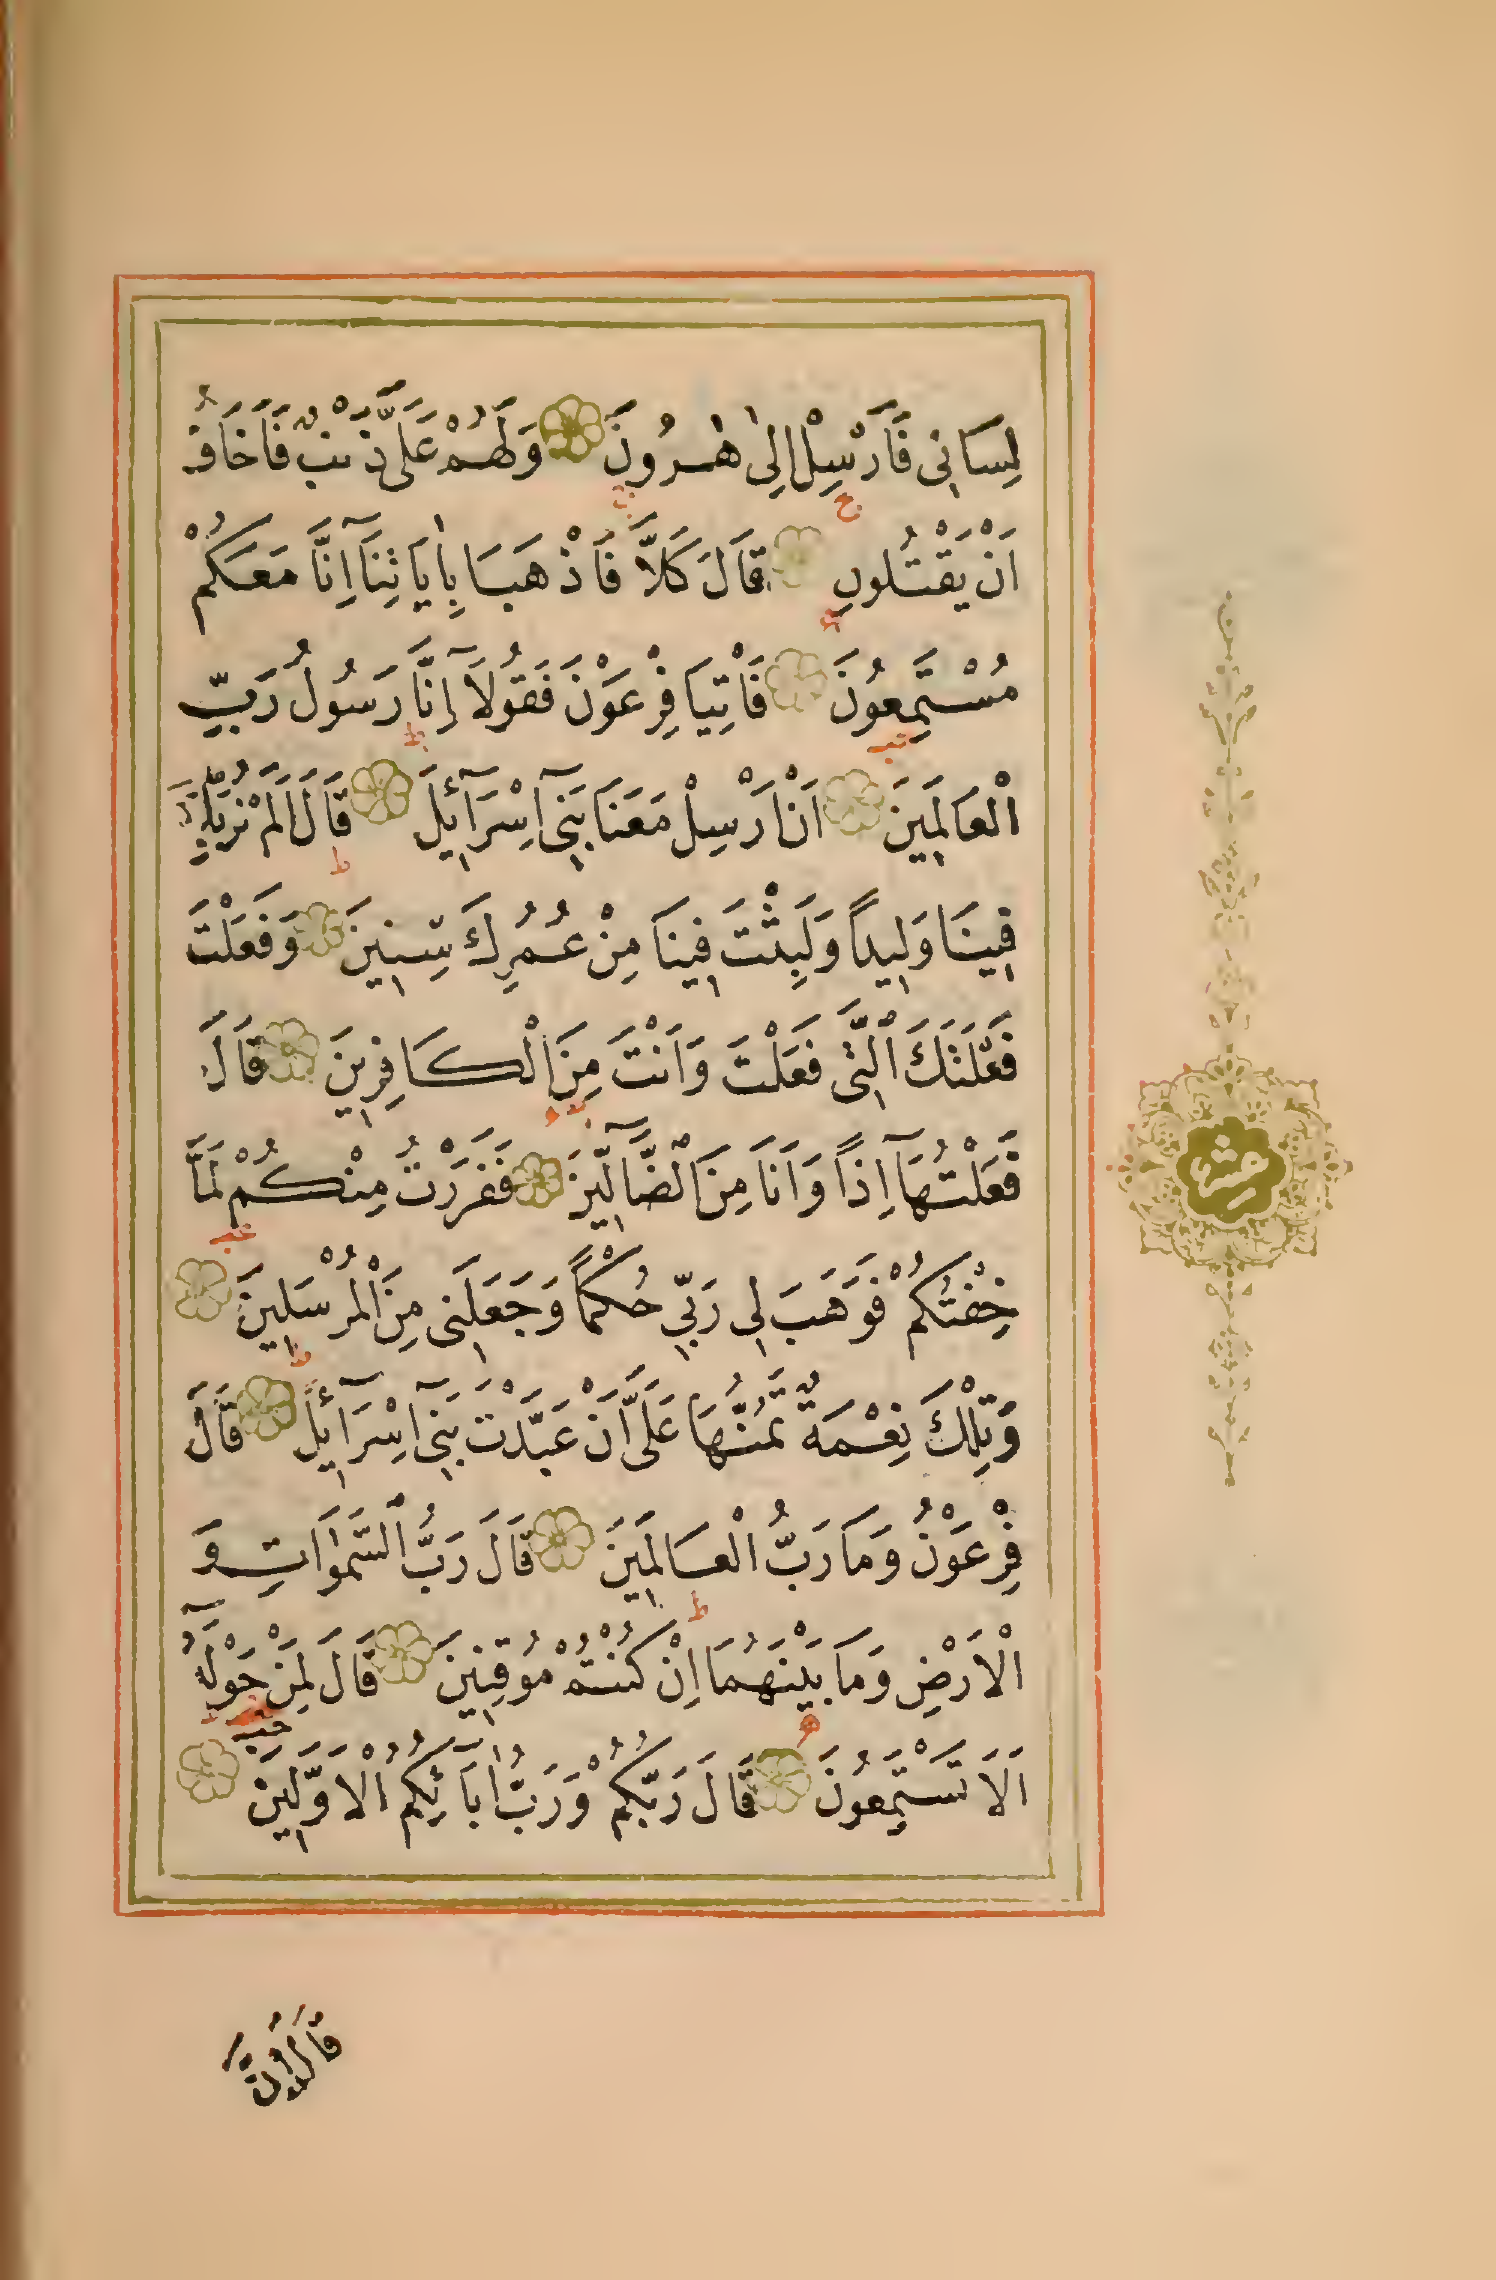 لِسَانِى فَاَرْسِلْ اِلٰى هٰرُونَ وَلَهُمْ عَلَىَّ ذَنْبٌ فَاَخَافُ
اَنْ يَقْتُلُونِ قَالَ كَلَّا فَاذْهَبَا بِاٰيَاتِنَٓا اِنَّا مَعَكُمْ
مُسْتَمِعُونَ فَاْتِيَا فِرْعَوْنَ فَقُولَٓا اِنَّا رَسُولُ رَبِّ
الْعَالَمِينَ اَنْ اَرْسِلْ مَعَنَا بَنِٓى اِسْرَٓائِلَ قَالَ اَلَمْ نُرَبِّكَ
فِينَا وَلِيداً وَلَبِثْتَ فِينَا مِنْ عُمُرِكَ سِنِينَ وَفَعَلْتَ
فَعْلَتَكَ الَّتِى فَعَلْتَ وَاَنْتَ مِنَ الْكَافِرِينَ قَالَ
فَعَلْتُهَٓا اِذاً وَاَنَا مِنَ الضَّٓالِّينَ فَفَرَرْتُ مِنْكُمْ لَمَّا
خِفْتُكُمْ فَوَهَبَ لِى رَبِّى حُكْماً وَجَعَلَنِى مِنَ الْمُرْسَلِينَ
وَتِلْكَ نِعْمَةٌ تَمُنُّهَا عَلَىَّ اَنْ عَبَّدْتَ بَنِٓى اِسْرَٓائِلَ قَالَ
فِرْعَوْنُ وَمَا رَبُّ الْعَالَمِينَ قَالَ رَبُّ السَّمٰوَاتِ وَ
الْاَرْضِ وَمَا بَيْنَهُمَا اِنْ كُنْتُمْ مُوقِنِينَ قَالَ لِمَنْ حَوْلَهُٓ
اَلَا تَسْتَمِعُونَ قَالَ رَبُّكُمْ وَرَبُّ اٰبَٓائِكُمُ الْاَوَّلِينَ
قَالَ اِنَّ
عشر